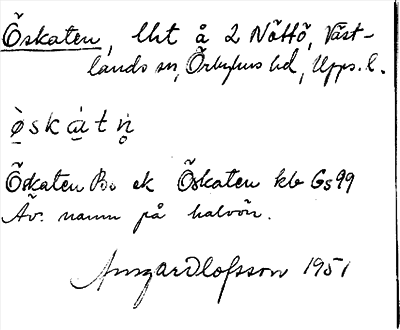 Öskaten, lht å 2 Nöttö, Väst-
lands sn, Örbyhus hd, Upps. l.
ø̀skát n̥
Öskaten Bo ek Öskaten kb Gs 99
Äv. namn på halvön.
Ansgar Olofsson 1951